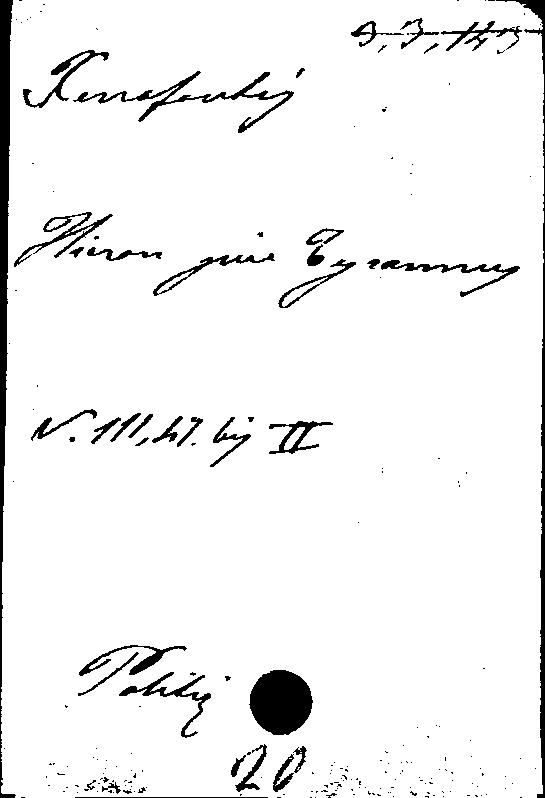 3,3,143
Xenofontis
Hieron sive Tyrannus
N. 111,47. bij II
20